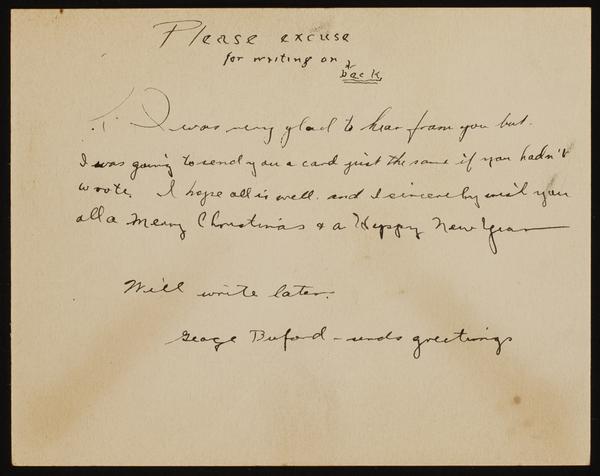 Please excuse
for writing on
back,
I was very glad to hear from you but.
I was going to send you a card just the same if you hadn't
wrote. I hope all is well. and I sincerely wish you
all a Merry Christmas & a Happy New Year
Will write later.
George Buford - sends greetings